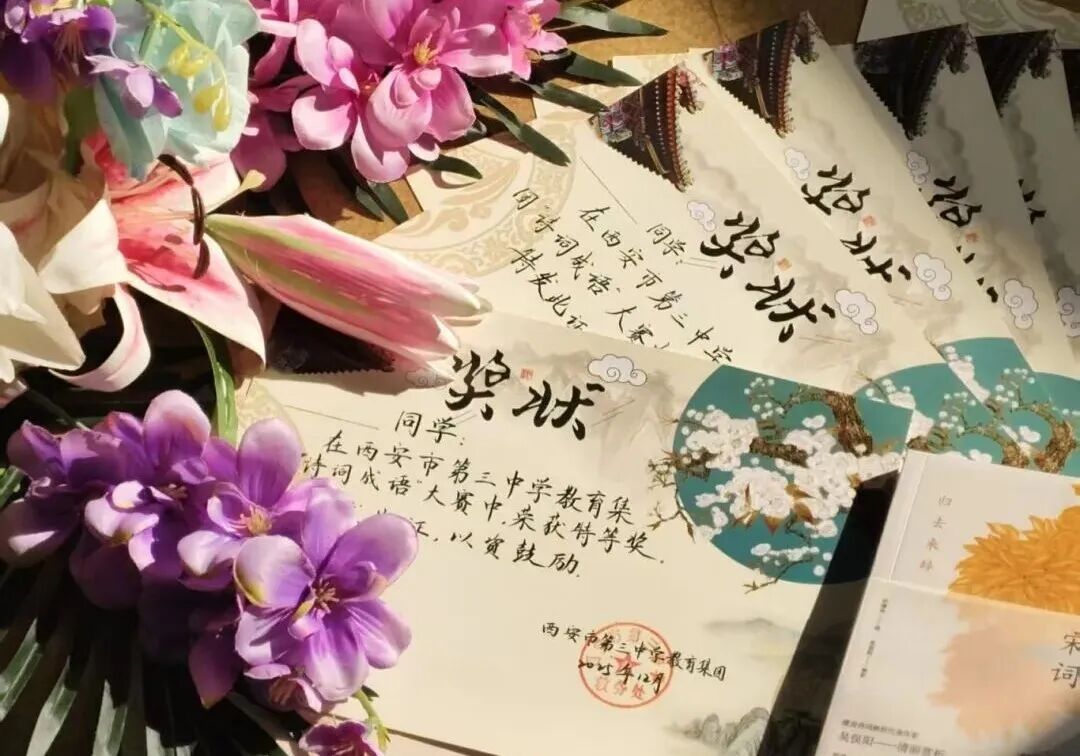 奖状
同学:
在西安市第三中学教育集
诗词成语"大赛中,荣获特等奖,
此证,以资鼓励.
西安市第三中学教育集团
2025年12月
奖状
同学:
在西安市第三中学
团"诗词成语"大赛
特发此证
奖状
奖
归去来辞
宋词